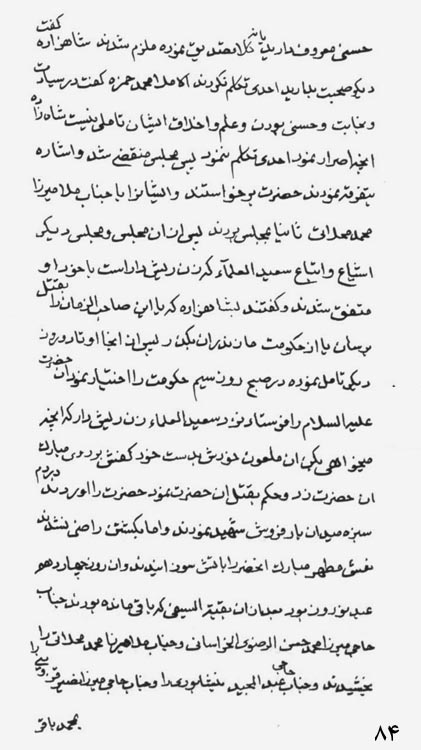 گفت
حسنی معروف دارید باشد کلا تصدیق نموده ملزم شدند شاهزاده
دیگر صحبت بدارید احدی تکلم نکردند الا ملا محمد حمزه گفت در سیادت
و نجابت و حسنی بودن و علم و اخلاق ایشان تأملی نیست شاهزاده
آنچه اصرار نمود احدی تکلم ننمود پس مجلس منقضی شد و اشاره
بتفرقه نمودند حضرت برخواستند و ایشانرا با جناب ملا میرزا
محمد محلاتی ثانیا بمجلس بردند پس از آن مجلس و مجلس دیگر
اشیاع و اتباع سعید العلماء که زن ریش دار است با خود او
متفق شدند و گفتند بشاهزاده که یا این صاحب الزمان را بقتل
برسان یا از حکومت مازندران بگذر پس از آنجا او تا دو روز
دیگر تأمل نموده در صبح روز سیم حکومت را اختیار نمود آن حضرت
علیه السلام را فرستاد نزد سعید العلماء زن ریش دار که آنچه
میخواهی بکن آن ملعون خودش بدست خود کفش بر روی مبارک
آن حضرت زد و حکم بقتل آن حضرت نمود حضرت را آوردند در وم
سبزه میدان بارفروش شهید نمودند و اما بکشتن راضی نشدند
نعش مطهر مبارک آنحضر را بآتش سوزانیدند و آن روز چهاردهم
عید نوروز بود بعد از آن بقیة السیفی که باقی مانده بودند جناب
حاجی میرزا محمد حسن الرضوی الخراسانی و جناب ملا میرزا محمد محلاتی را
بخشیدند و جناب حاجی عبد المجید نیشابوری را و جناب حاجی میرزا نصیر قزوینی را
محمد باقر
۸۴